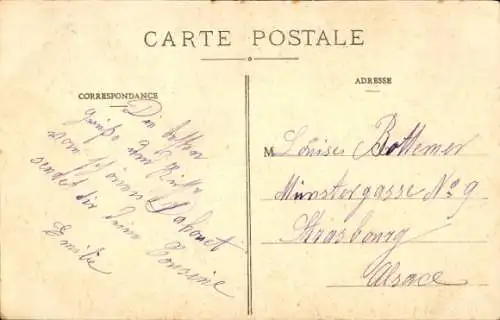 CARTE POSTALE
CORRESPONDANCE
Die besten
Grüße und Küsse
vom schönen Dahouet
sendet dir deine Cousine
Emilie
ADRESSE
M Louises Bottemer
Münstergasse No 9
Strasbourg
Alsace